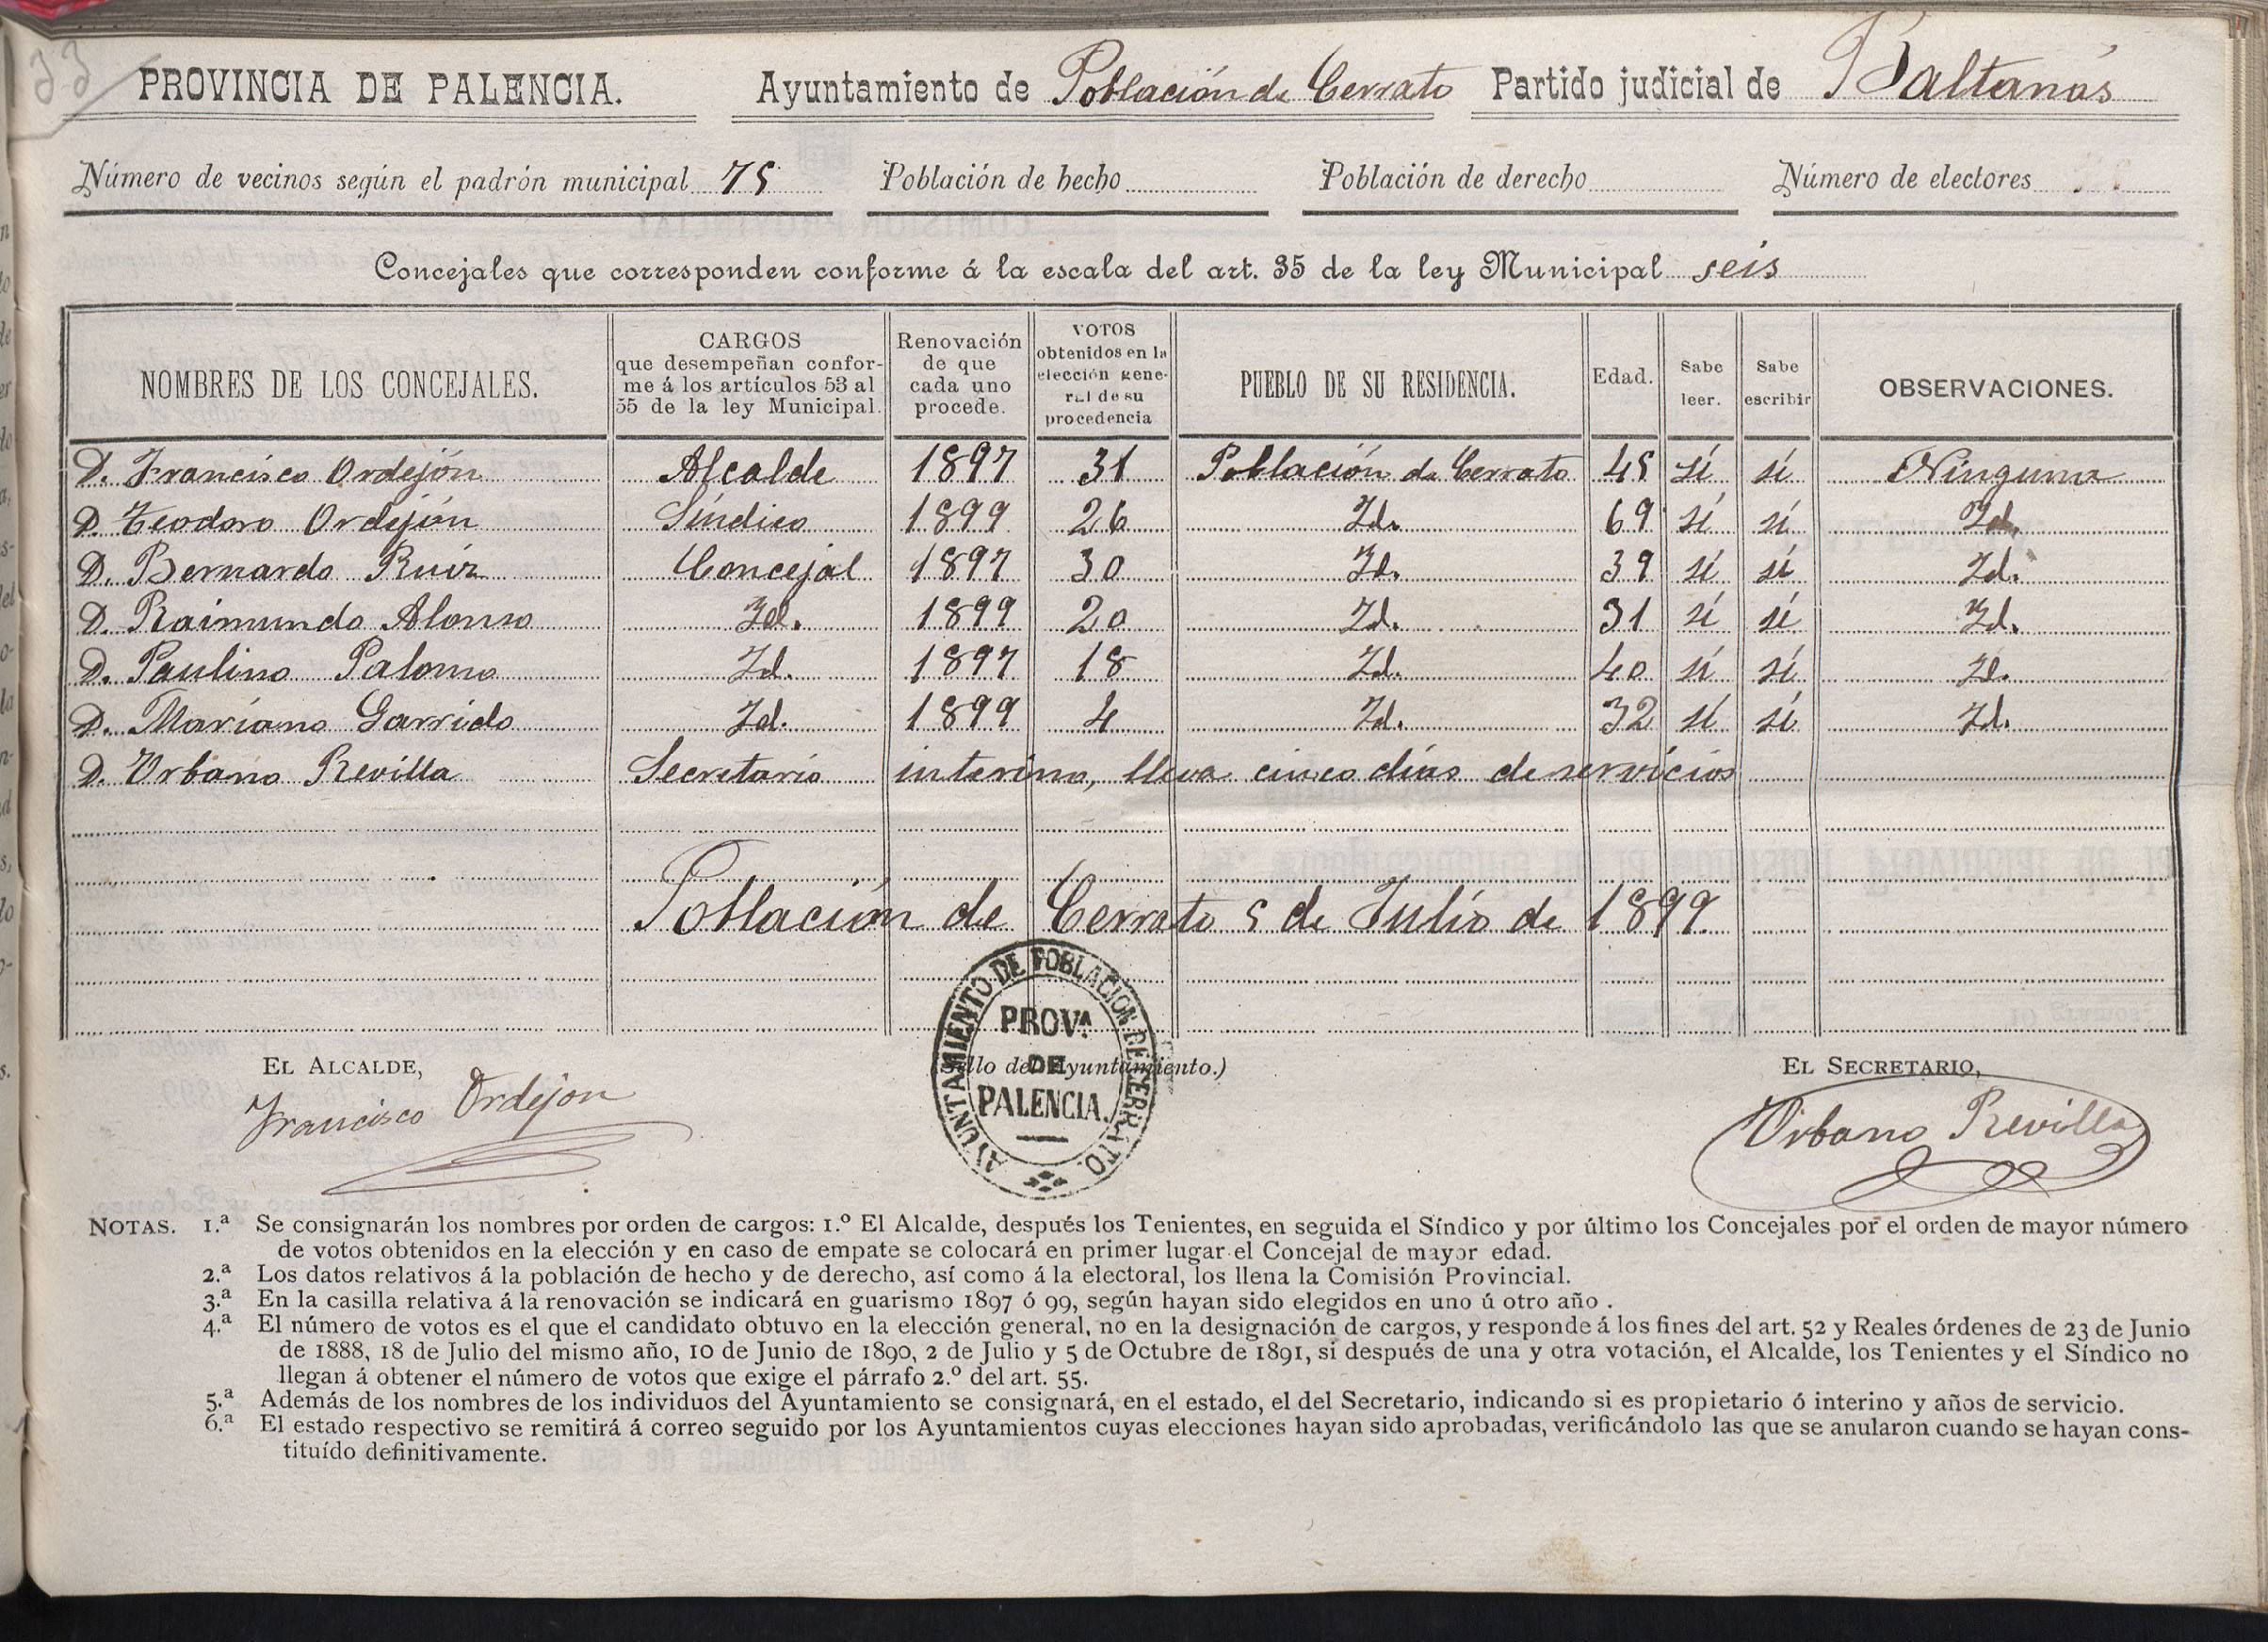 33
PROVINCIA DE PALENCIA. Ayuntamiento de Población de Cerrato Partido judicial de Baltanás
Número de vecinos según el padrón municipal 75 Población de hecho Población de derecho Número de electores
Concejales que corresponden conforme á la escala del art. 35 de la ley Municipal seis
NOMBRES DE LOS CONCEJALES. CARGOS que desempeñan conforme á los artículos 53 al 55 de la ley Municipal. Renovación de que cada uno procede. VOTOS obtenidos en la elección general de su procedencia PUEBLO DE SU RESIDENCIA. Edad. Sabe leer. Sabe escribir OBSERVACIONES.
D. Francisco Ordejón Alcalde 1897 31 Población de Cerrato 45 sí sí Ninguna
D. Teodoro Ordejón Síndico 1899 26 Id. 69 sí sí Id.
D. Bernardo Ruiz Concejal 1897 30 Id. 39 sí sí Id.
D. Raimundo Alonso Id. 1899 20 Id. 31 sí sí Id.
D. Paulino Palomo Id. 1897 18 Id. 40 sí sí Id.
D. Mariano Garrido Id. 1899 4 Id. 32 sí sí Id.
D. Urbano Revilla Secretario interino, lleva cinco días de servicios
Población de Cerrato 5 de Julio de 1899.
EL ALCALDE, (Sello del Ayuntamiento.) EL SECRETARIO,
Francisco Ordejon
AYUNTAMIENTO DE POBLACION DE CERRATO.
PROVA.
DE
PALENCIA.
Urbano Revilla
NOTAS. 1.ª Se consignarán los nombres por orden de cargos: 1.º El Alcalde, después los Tenientes, en seguida el Síndico y por último los Concejales por el orden de mayor número
de votos obtenidos en la elección y en caso de empate se colocará en primer lugar el Concejal de mayor edad.
2.ª Los datos relativos á la población de hecho y de derecho, así como á la electoral, los llena la Comisión Provincial.
3.ª En la casilla relativa á la renovación se indicará en guarismo 1897 ó 99, según hayan sido elegidos en uno ú otro año .
4.ª El número de votos es el que el candidato obtuvo en la elección general, no en la designación de cargos, y responde á los fines del art. 52 y Reales órdenes de 23 de Junio
de 1888, 18 de Julio del mismo año, 10 de Junio de 1890, 2 de Julio y 5 de Octubre de 1891, si después de una y otra votación, el Alcalde, los Tenientes y el Síndico no
llegan á obtener el número de votos que exige el párrafo 2.º del art. 55.
5.ª Además de los nombres de los individuos del Ayuntamiento se consignará, en el estado, el del Secretario, indicando si es propietario ó interino y años de servicio.
6.ª El estado respectivo se remitirá á correo seguido por los Ayuntamientos cuyas elecciones hayan sido aprobadas, verificándolo las que se anularon cuando se hayan cons-
tituído definitivamente.